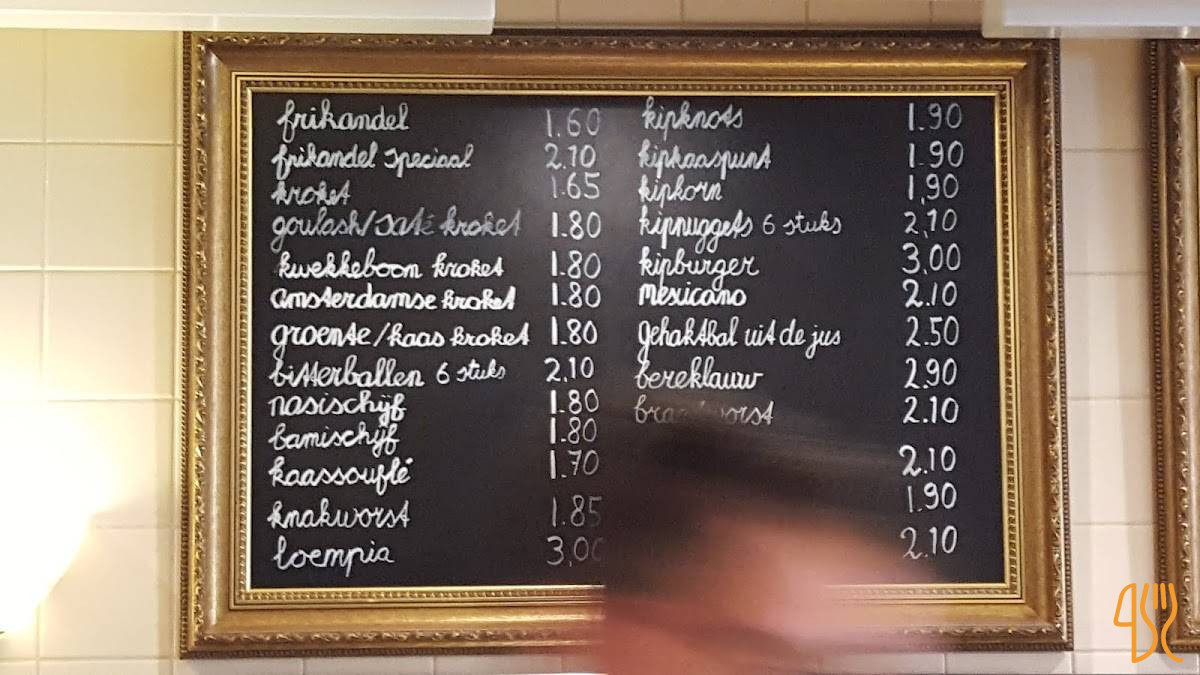 frikandel 1.60
frikandel speciaal 2.10
kroket 1.65
goulash/saté kroket 1.80
kwekkeboom kroket 1.80
amsterdamse kroket 1.80
groente/kaas kroket 1.80
bitterballen 6 stuks 2,10
nasischijf 1.80
bamischijf 1.80
kaassouflé 1.70
knakworst 1.85
loempia 3,00
kipknots 1.90
kipkaaspunt 1.90
kipkorn 1,90
kipnuggets 6 stuks 2,10
kipburger 3,00
mexicano 2.10
gehaktbal uit de jus 2.50
bereklauw 2.90
2.10
2.10
1.90
2.10